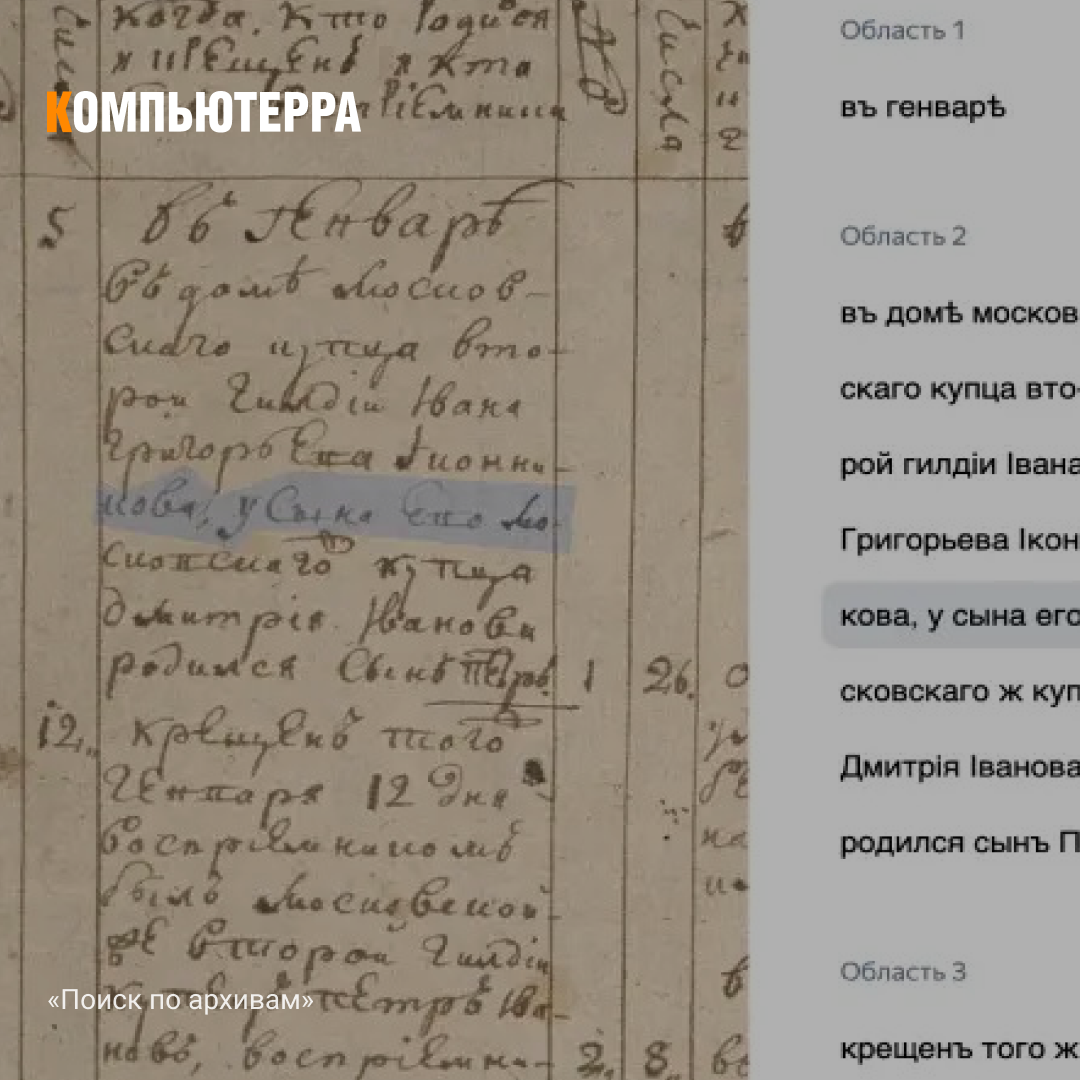 Когда. Кто родился
и крещенъ и кто
восприемники
Числа
КОМПЬЮТЕРРА
5
въ генварѣ
въ домѣ москов-
скаго купца вто-
рои гилдіи Івана
Григорьева Іконни-
кова, у сына его мо-
сковскаго ж купца
дмитрія Іванова
родился сынъ Петръ
1
26.
12.
крещенъ того ж
генваря 12 дня
восприемникомъ
былъ московской
же второй гилдіи
купецъ петръ Ива-
новъ, воспріемни-
2.
8.
«Поиск по архивам»
Область 1
въ генварѣ
Область 2
въ домѣ москов
скаго купца вто-
рой гилдіи Івана
Григорьева Ікон
кова, у сына его
сковскаго ж куп
Дмитрія Іванова
родился сынъ П
Область 3
крещенъ того ж